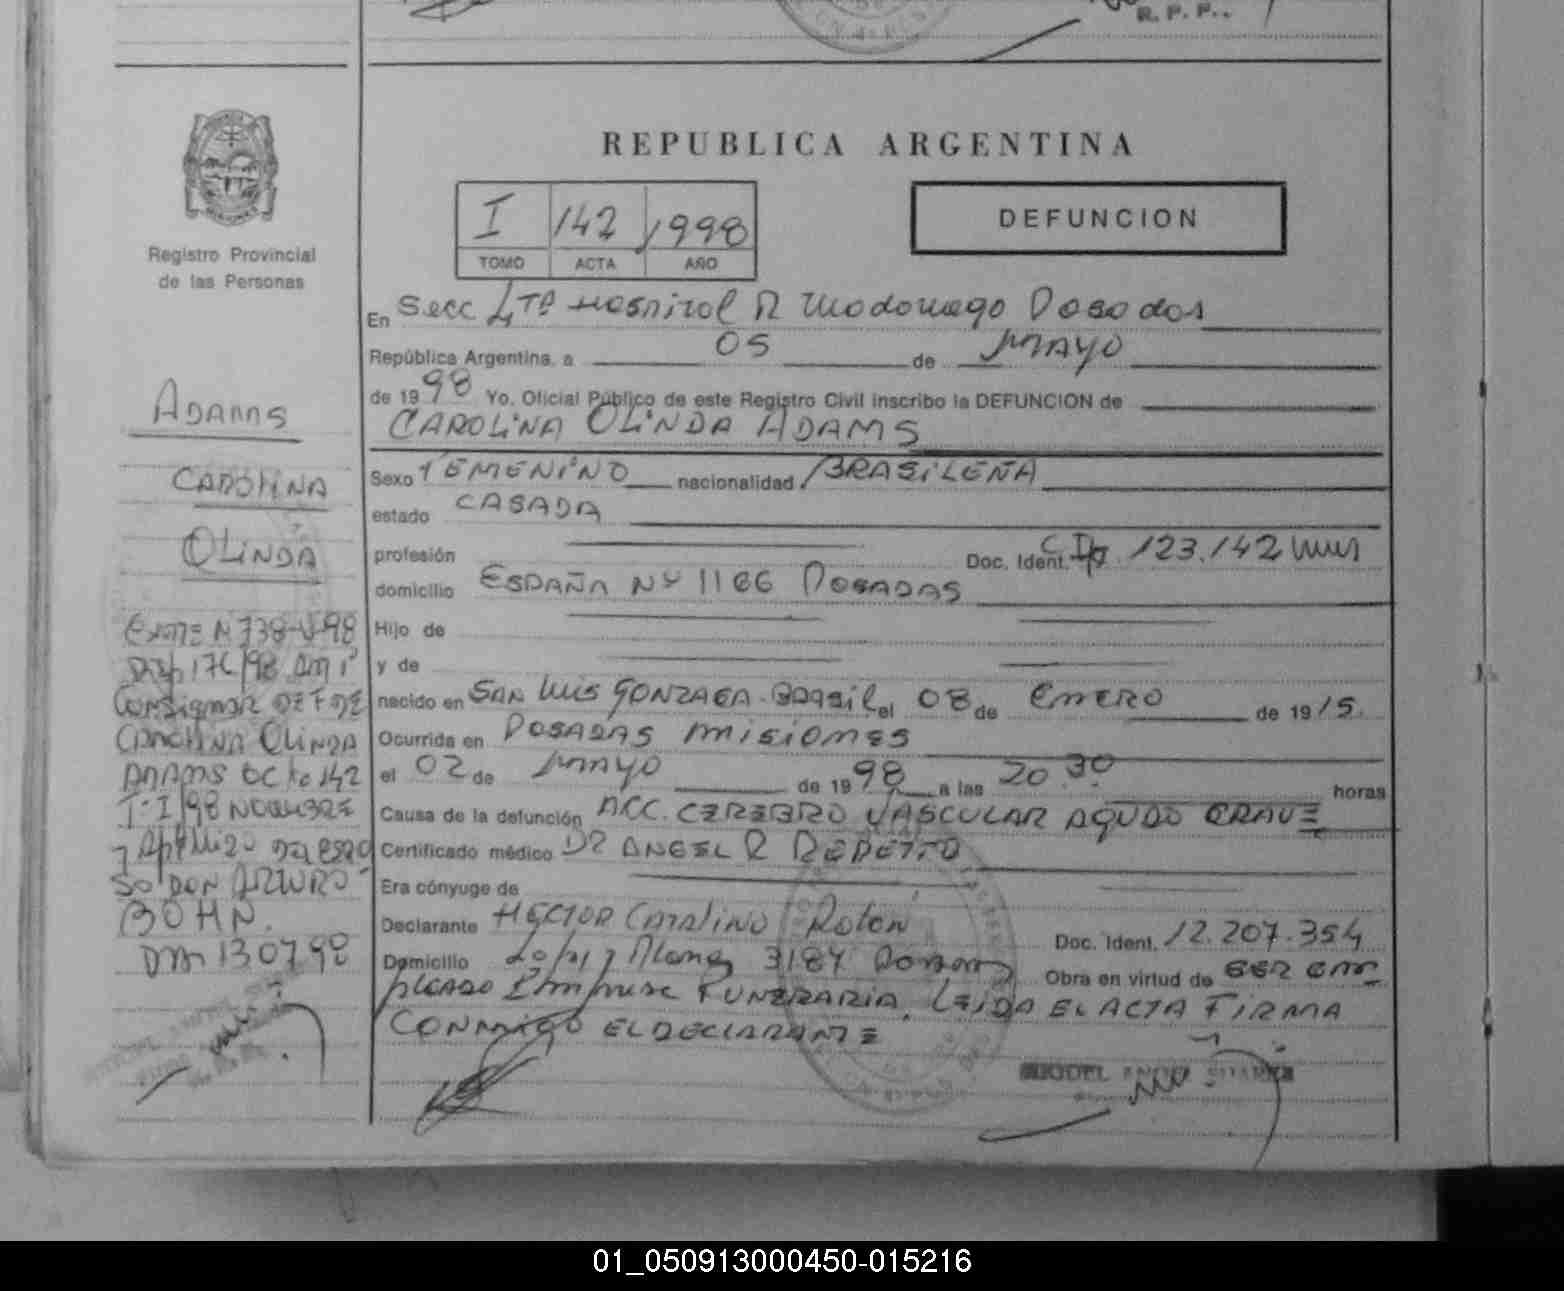 R. P. P.
REPUBLICA ARGENTINA
I 142 1998
TOMO ACTA AÑO
DEFUNCION
Registro Provincial
de las Personas
ADAMS
CAROLINA
OLINDA
En Secc 4ta Hospital R Madariaga Posadas
República Argentina, a 05 de MAYO
de 1998 Yo, Oficial Público de este Registro Civil inscribo la DEFUNCION de
CAROLINA OLINDA ADAMS
Sexo FEMENINO nacionalidad BRASILEÑA
estado CASADA
profesión Doc. Ident. 123.142
domicilio ESPAÑA Nº 1166 POSADAS
Hijo de
y de
nacido en SAN LUIS GONZAGA BRASIL el 08 de ENERO de 1915.
Ocurrida en POSADAS MISIONES
el 02 de MAYO de 1998 a las 20 30 horas
Causa de la defunción ACC. CEREBRO VASCULAR AGUDO GRAVE
Certificado médico DR ANGEL R REPETTO
Era cónyuge de
Declarante HECTOR CATALINO Rolón Doc. Ident. 12.207.354
Domicilio 3184 Obra en virtud de SER EM
PLEADO FUNERARIA. LEIDA EL ACTA FIRMA
CONMIGO EL DECLARANTE
EXPTE N 738-V-98
Disp 176/98
Consignar DEF DE
CAROLINA OLINDA
ADAMS acta 142
T. I/98 NOMBRE
y Apellido del espo
so DON ARTURO
BOHN.
130798
01_050913000450-015216